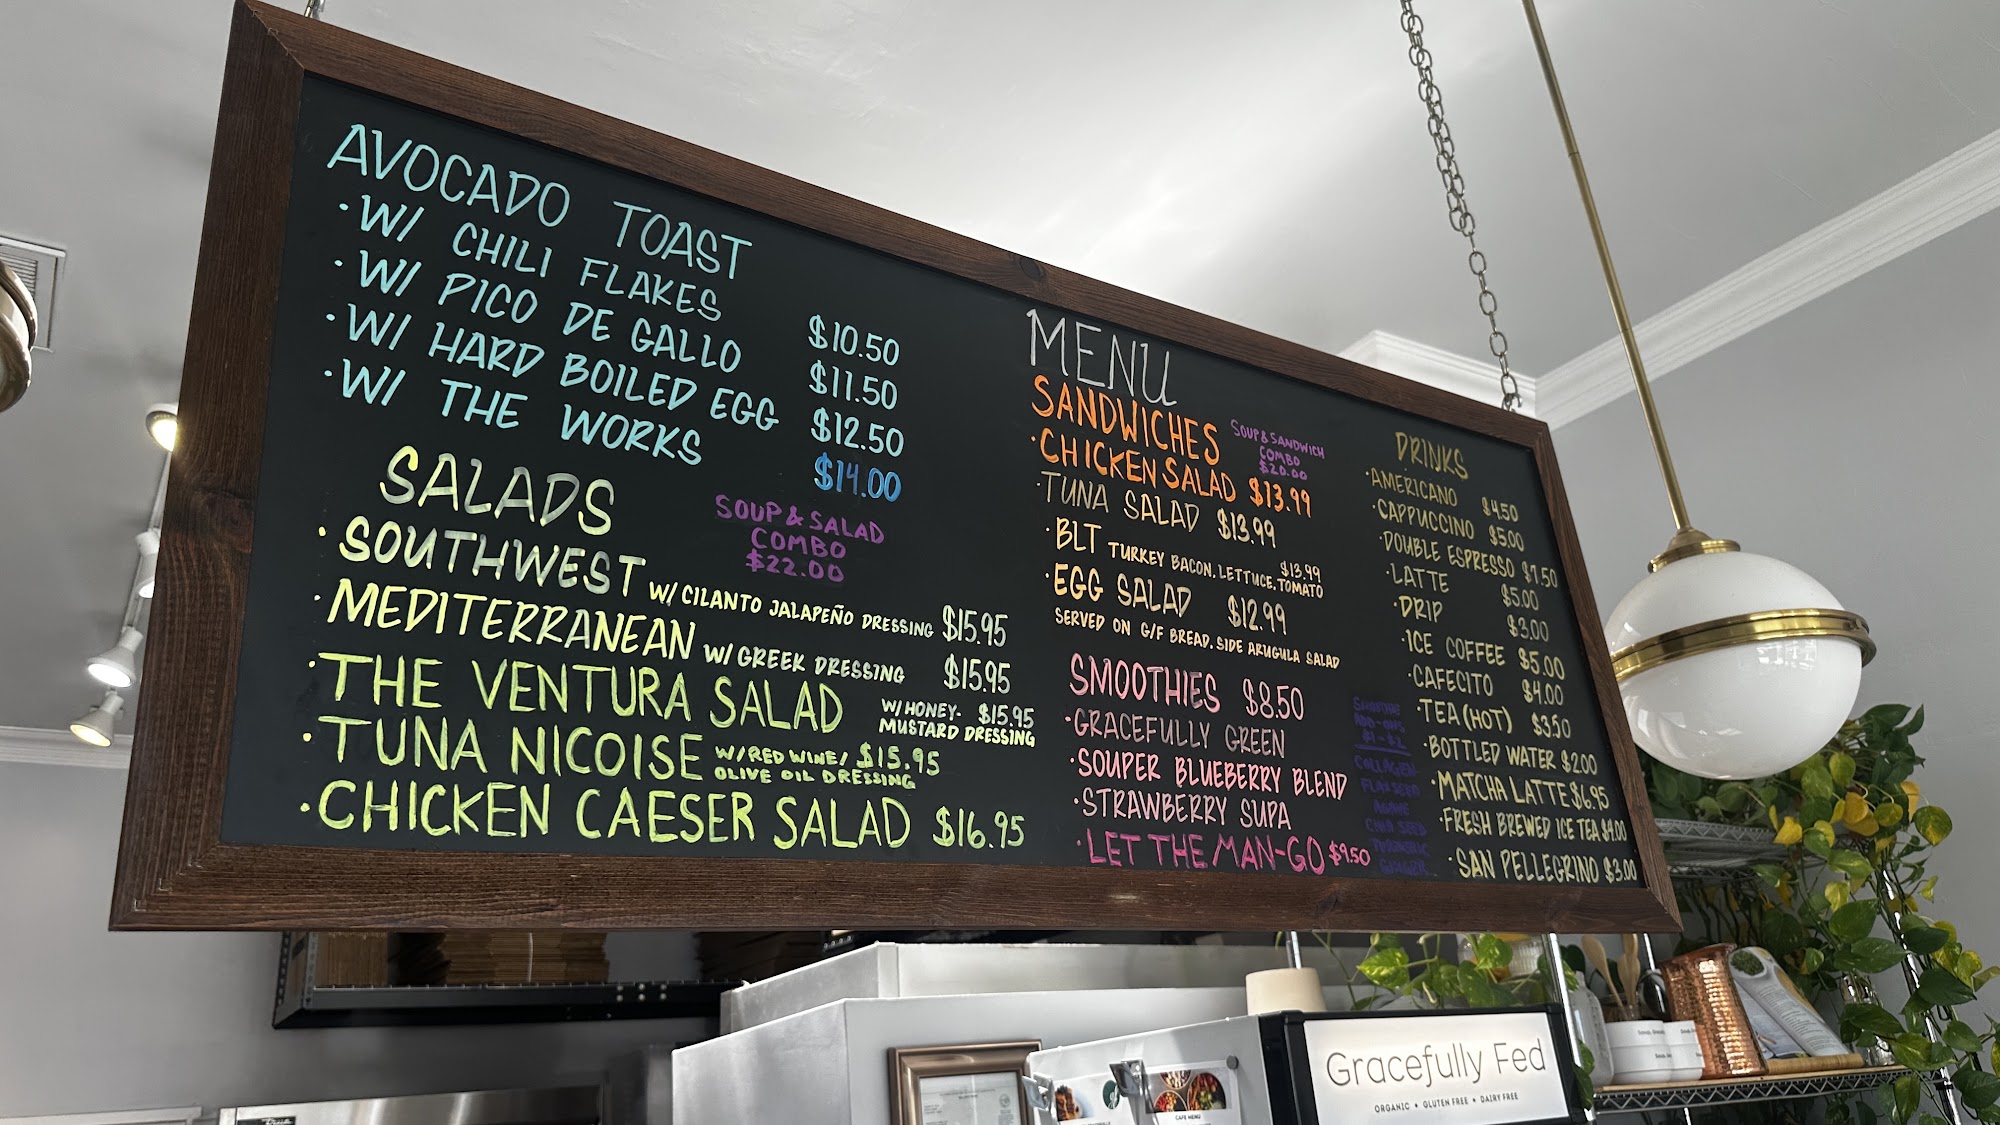 AVOCADO TOAST
· W/ CHILI FLAKES $10.50
· W/ PICO DE GALLO $11.50
· W/ HARD BOILED EGG $12.50
· W/ THE WORKS $14.00
SALADS
SOUP & SALAD
COMBO
$22.00
· SOUTHWEST W/ CILANTO JALAPEÑO DRESSING $15.95
· MEDITERRANEAN W/ GREEK DRESSING $15.95
· THE VENTURA SALAD W/ HONEY- $15.95
MUSTARD DRESSING
· TUNA NICOISE W/ RED WINE/ $15.95
OLIVE OIL DRESSING
· CHICKEN CAESER SALAD $16.95
MENU
SANDWICHES
SOUP & SANDWICH
COMBO
$20.00
· CHICKEN SALAD $13.99
· TUNA SALAD $13.99
· BLT TURKEY BACON, LETTUCE, TOMATO $13.99
· EGG SALAD $12.99
SERVED ON G/F BREAD. SIDE ARUGULA SALAD
SMOOTHIES $8.50
· GRACEFULLY GREEN
· SOUPER BLUEBERRY BLEND
· STRAWBERRY SUPA
· LET THE MAN-GO $9.50
SMOOTHIE
ADD-ONS
$1-$2
COLLAGEN
FLAXSEED
AGAVE
CHIA SEED
TURMERIC
GINGER
DRINKS
· AMERICANO $4.50
· CAPPUCCINO $5.00
· DOUBLE ESPRESSO $1.50
· LATTE $5.00
· DRIP $3.00
· ICE COFFEE $5.00
· CAFECITO $4.00
· TEA (HOT) $3.50
· BOTTLED WATER $2.00
· MATCHA LATTE $6.95
· FRESH BREWED ICE TEA $4.00
· SAN PELLEGRINO $3.00
Gracefully Fed
ORGANIC • GLUTEN FREE • DAIRY FREE
CAFE MENU